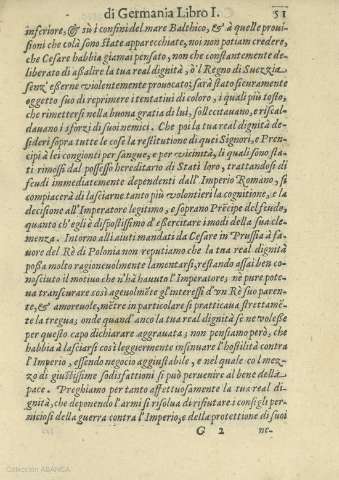 di Germania Libro I. 51
inferiore, & sù i confini del mare Balthico, & à quelle proui-
sioni che colà sono state apparecchiate, noi non potiam credere,
che Cesare habbia giamai pensato, non che constantemente de-
liberato di aßalire la tua real dignità, ò l Regno di Suezzia
senz' eßerne violentemente prouocato; sarà stato sicuramente
oggetto suo di reprimere i tentatiui di coloro, i quali più tosto,
che rimettersi nella buona gratia di lui, sollecitauano, e riscal-
dauano i sforzi di suoi nemici. Che poi la tua real dignità de-
sideri sopra tutte le cose la restitutione di quei Signori, e Pren-
cipi à lei congionti per sangue, e per vicinità, li quali sono sta-
ti rimossi dal possesso hereditario di Stati loro, trattandosi di
feudi immediatamente dependenti dall' Imperio Romano, si
compiacerà di lasciarne tanto più volontieri la cognitione, e la
decisione all'Imperatore legitimo, e soprano Prēcipe del feudo,
quanto ch'egli è dispostissimo d'eßercitare i modi della sua cle-
menza. Intorno alli aiuti mandati da Cesare in Prussia à fa-
uore del Rè di Polonia non reputiamo che la tua real dignità
poßa molto ragioneuolmente lamentarsi, restando assai ben co-
nosciuto il motiuo che n'hà hauuto l'Imperatore; nè pure pote-
ua transcurare così ageuolmēte gl'interessi d'vn Rè suo paren-
te, & amoreuole, mētre in particolare si pratticaua strettamē-
te la tregua; onde quand' anco la tua real dignità se ne voleße
per questo capo dichiarare aggrauata; non pensiamo però, che
habbia à lasciarsi così leggiermente insinuare l'hostilità contra
l'Imperio, essendo negocio aggiustabile, e nel quale col mez-
zo di giustissime sodisfattioni si può peruenire al bene della
pace. Preghiamo per tanto affettuosamente la tua real di-
gnità, che deponendo l'armi si risolua di rifiutare i consigli per-
niciosi della guerra contra l'Imperio; e della protettione di suoi
G 2 ne-
Colección ABANCA